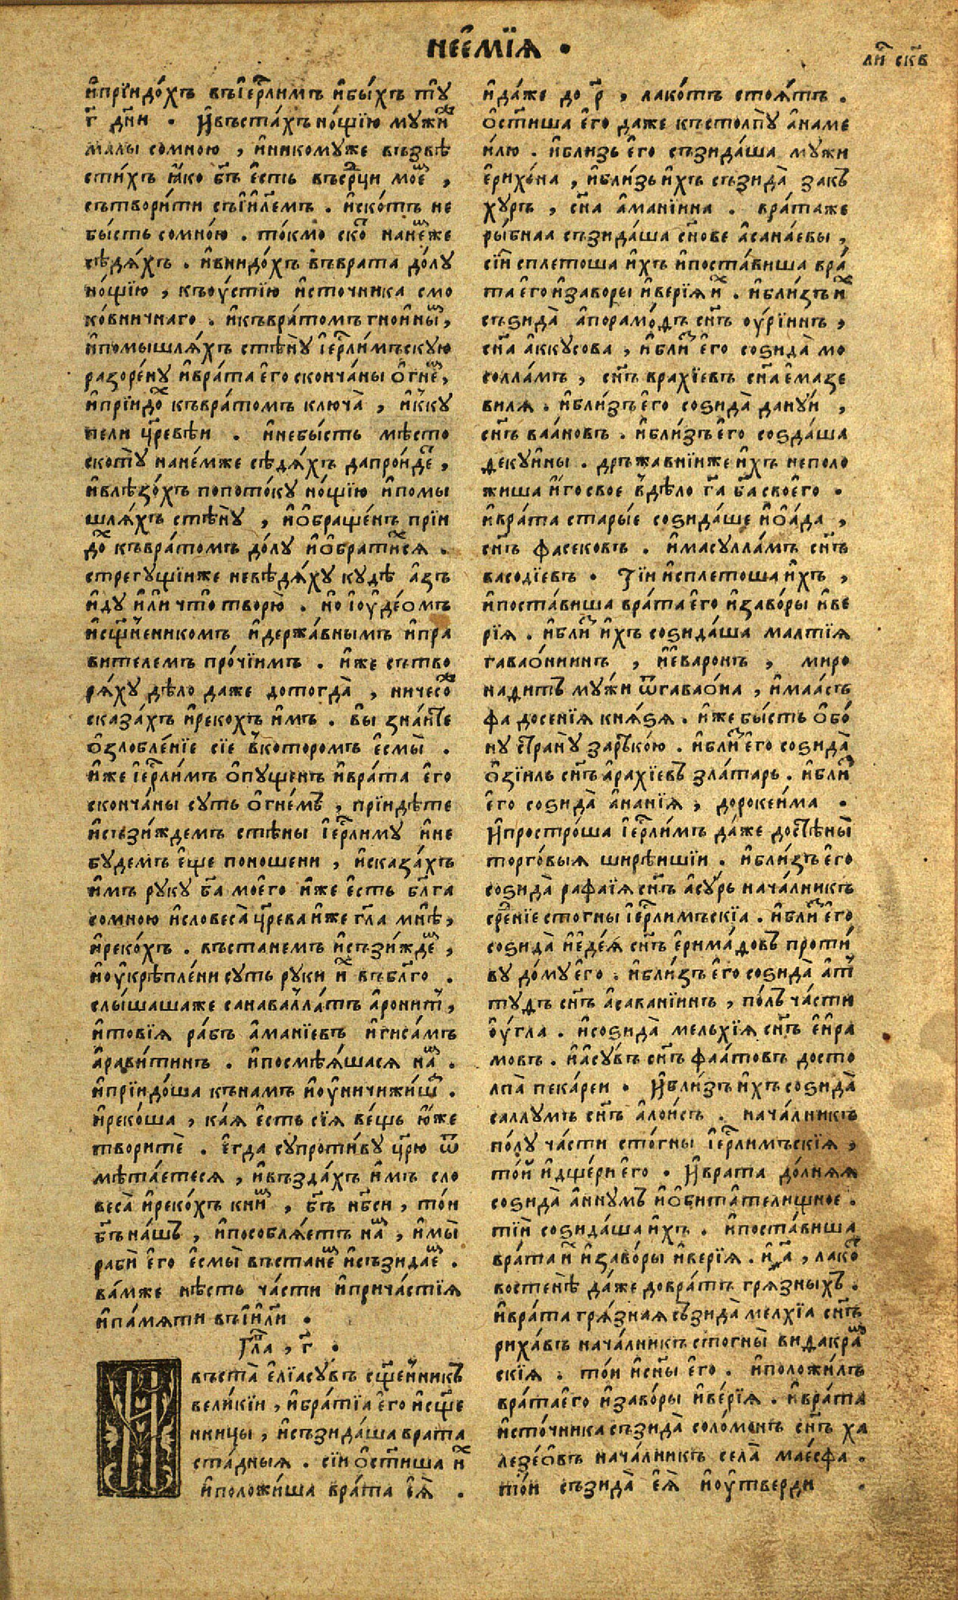 неемїѧ •
ли скв
ипрїидо́хъ въїерⷭ҇лимъ ибы́хъ тꙋ
г҃ дн҃и . Ивъста́хъ но́щїю мꙋжи
малы сомною , иникомꙋже възвѣ
сти́хъ ꙗко бг҃ъ есть всрⷣци моеⷨ ,
сътвори́ти съїил҃емъ . иско́тъ не
бысть сомно́ю . то́кмо скоⷮ нане́же
сѣдѧ́хъ . ивнидо́хъ въврата до́лꙋ
но́щїю , къоу́стїю источника смо
ко́вничнаго . икъвра́томъ гноинымⷨ ,
ипомышлѧ́хъ стѣ́нꙋ їерⷭ҇лимъскꙋю
разоре́нꙋ иврата его скончаны огнеⷨ ,
ипрїидоⷯ къвра́томъ ключа̀ , ик̾кꙋ
пели цр҃евѣи . инебы́сть мѣ́сто
ското́ꙋ нане́мже сѣдѧ́хъ дапрои́деⷮ ,
ивлѣзо́хъ попото́кꙋ но́щїю ипомы
шлѧ́хъ стѣ́нꙋ , иобраще́нъ прїи
доⷯ къвра́томъ до́лꙋ иобрати́хсѧ .
стрегꙋщїиже невѣ́дѧхꙋ кꙋдѣ азъ
идꙋ или что творю̀ . но їоуде́омъ
исщ҃енникомъ идержа́внымъ ипра
вителемъ про́чїимъ . иже сътво
рѧ́хꙋ дѣло даже дотогда̀ , ничесоⷤ
сказа́хъ ирекохъ имъ . вы зна́ите
озлобле́нїе сїе в̾которомъ есмы̀ .
иже їерⷭ҇лимъ опꙋще́нъ иврата его
сконча́ны сꙋть огне́мъ , прїидѣте
исъзи́ждемъ стѣны їерⷭ҇лимꙋ ине
бꙋдемъ еще поношени , исказа́хъ
имъ рꙋкꙋ бг҃а моего иже есть бл҃га
сомною исловеса̀ цр҃ева иже гл҃а мнѣ ,
ирекохъ . въста́немъ исъзи́ждеⷨ ,
иоукрѣпле́ни сꙋть рꙋки иⷯ въбл҃го .
слы́шашаже санавалла́тъ аронитъ ,
итові́ѧ ра́бъ ама́нїевъ игиса́мъ
арави́тинъ . ипосмѣѧ́шасѧ наⷨ .
ипрїидо́ша къна́мъ иоуничижи́ша .
ирекоша , ка́ѧ есть сїѧ ве́щь ю́же
творитѐ . егда сꙋпроти́вꙋ цр҃ю ѿ
мѣта́етесѧ , ивъзда́хъ имъ сло
веса̀ иреко́хъ киⷨ , бг҃ъ нб҃си , то́и
бг҃ъ на́шъ , ипособлѧ́етъ наⷨ , имы̀
раби̇ его есмы̀ въстанеⷨ исъзидаеⷨ .
ва́мже нѣсть ча́сти ипричастїѧ
ипа́мѧти въїил҃и .
Гла , г҃ .
въста̀ елїасꙋ́въ сщ҃е́нникъ
вели́кїи , ибра́тїа его исщ҃е
нницы , исъзида́ша врата
ста́дныѧ . сїи ости́ша иⷯ
иположи́ша врата еѧ̀ .
ида́же до р҃ , лако́тъ стоѧ́тъ .
ости́ша его даже къстолпꙋ̀ анаме
илю . ибли́зь его съзида́ша мꙋжи
ерихо́на , ибли́зь ихъ съзида̀ закъ
хꙋръ , сн҃а амані́ина . врата́же
ры́бнаа съзида́ша сн҃ове асана́евы ,
сїи сплетоша ихъ ипоста́виша вра
та его изаворы иверїѧ иⷯ . ибли́зъ иⷯ
съзида̀ апорамо́дъ сн҃ъ оурїинъ ,
сн҃а аккꙋсова , иблиⷥ его соѕида̀ мо
соллам , сн҃ъ врахїевъ сн҃а емазе
вилѧ . ибли́зъ его соѕида̀ данꙋи ,
сн҃ъ ваа́новъ . ибли́зъ его соѕдаша
декꙋи́ны . дръжавнїиже ихъ неполо
жиша иго свое в̾дѣло га҃ ба҃ свое́го .
иврата ста́рые соѕида́ше иоа́да ,
сн҃ъ фасековъ . имасꙋлла́мъ сн҃ъ
васодїевъ . Тїи исплетоша ихъ ,
ипоста́виша врата его изаво́ры иве
рїѧ . иблиⷥ ихъ соѕида́ша малтїѧ
гаваѡ́нинъ , иеваронъ , миро
надитъ мꙋжи ѿгаваѡ́на , имааст
фа досенїѧ кнѧ́ѕѧ . иже бысть обо
нꙋ странꙋ зарѣко́ю . иблиⷥ его соѕида̀
озїилъ сн҃ъ арахїевъ злата́рь . иблиⷥ
его соѕида̀ ана́нїѧ , дорокеима .
Ипростро́ша їерⷭ҇лимъ да́же достѣны̀
торго́выѧ ширѣишїи . ибли́зъ его
соѕида̀ рафаїѧ сн҃ъ асꙋ́рь нача́лникъ
срⷣенїе стогны їерⷭ҇лимъскїа . иблиⷥ его
соѕида̀ иеде́ѧ сн҃ъ ерима́довъ проти́
вꙋ до́мꙋ его . ибли́зъ его соѕида̀ атⷮ
тꙋдъ сн҃ъ асаванїинъ , по́лъ ча́сти
оу́гла . исоѕида̀ мелхїѧ сн҃ъ еира
мовъ . иасꙋ́въ сн҃ъ фаа́товъ досто
лпа пека́реи . Ибли́зъ ихъ соѕида̀
саллꙋмъ сн҃ъ ало́исъ . нача́лникъ
по́лꙋ ча́сти сто́гны їерⷭ҇лимъскїѧ ,
то́и идще́ри его . Иврата до́лнѧѧ
соѕида̀ аннꙋмъ иобита́телищное .
тїи соѕида́ша ихъ . ипоста́виша
врата иⷯ изаво́ры иверїѧ . и҂а , лакоⷮ
востѣнѣ̀ да́же довра́тъ грѧ́зныхъ .
иврата грѧ́знаѧ съзида̀ мелхїа сн҃ъ
риха́въ нача́лникъ стогны̀ видакраⷨ
скїѧ . то́и исн҃ы его . иположилъ
врата его изаво́ры иве́рїѧ . иврата
исто́чника съзида̀ соло́монъ сн҃ъ ха
лезе́ѡвъ нача́лникъ села̀ мае́сфа .
то́и съзида̀ еѧ̀ иоутверди .